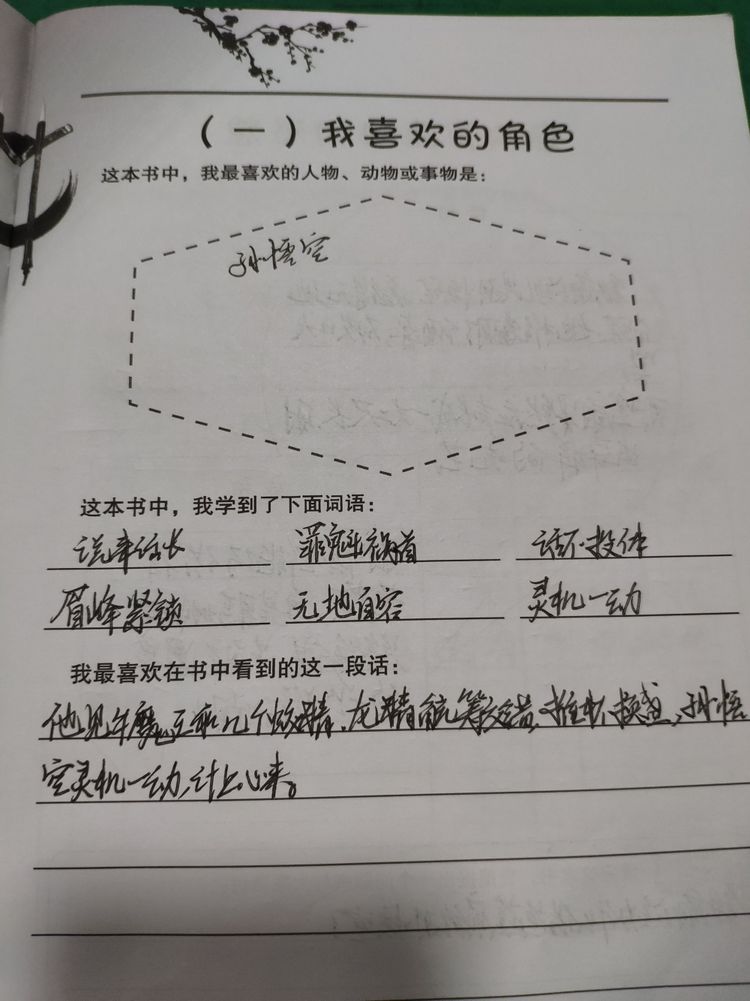 （一）我喜欢的角色
这本书中，我最喜欢的人物、动物或事物是：
孙悟空
这本书中，我学到了下面词语：
说来话长 罪魁祸首 话不投体
眉峰紧锁 无地自容 灵机一动
我最喜欢在书中看到的这一段话：
他见牛魔王和几个妖精、龙精 推杯换盏，孙悟
空灵机一动，计上心来。